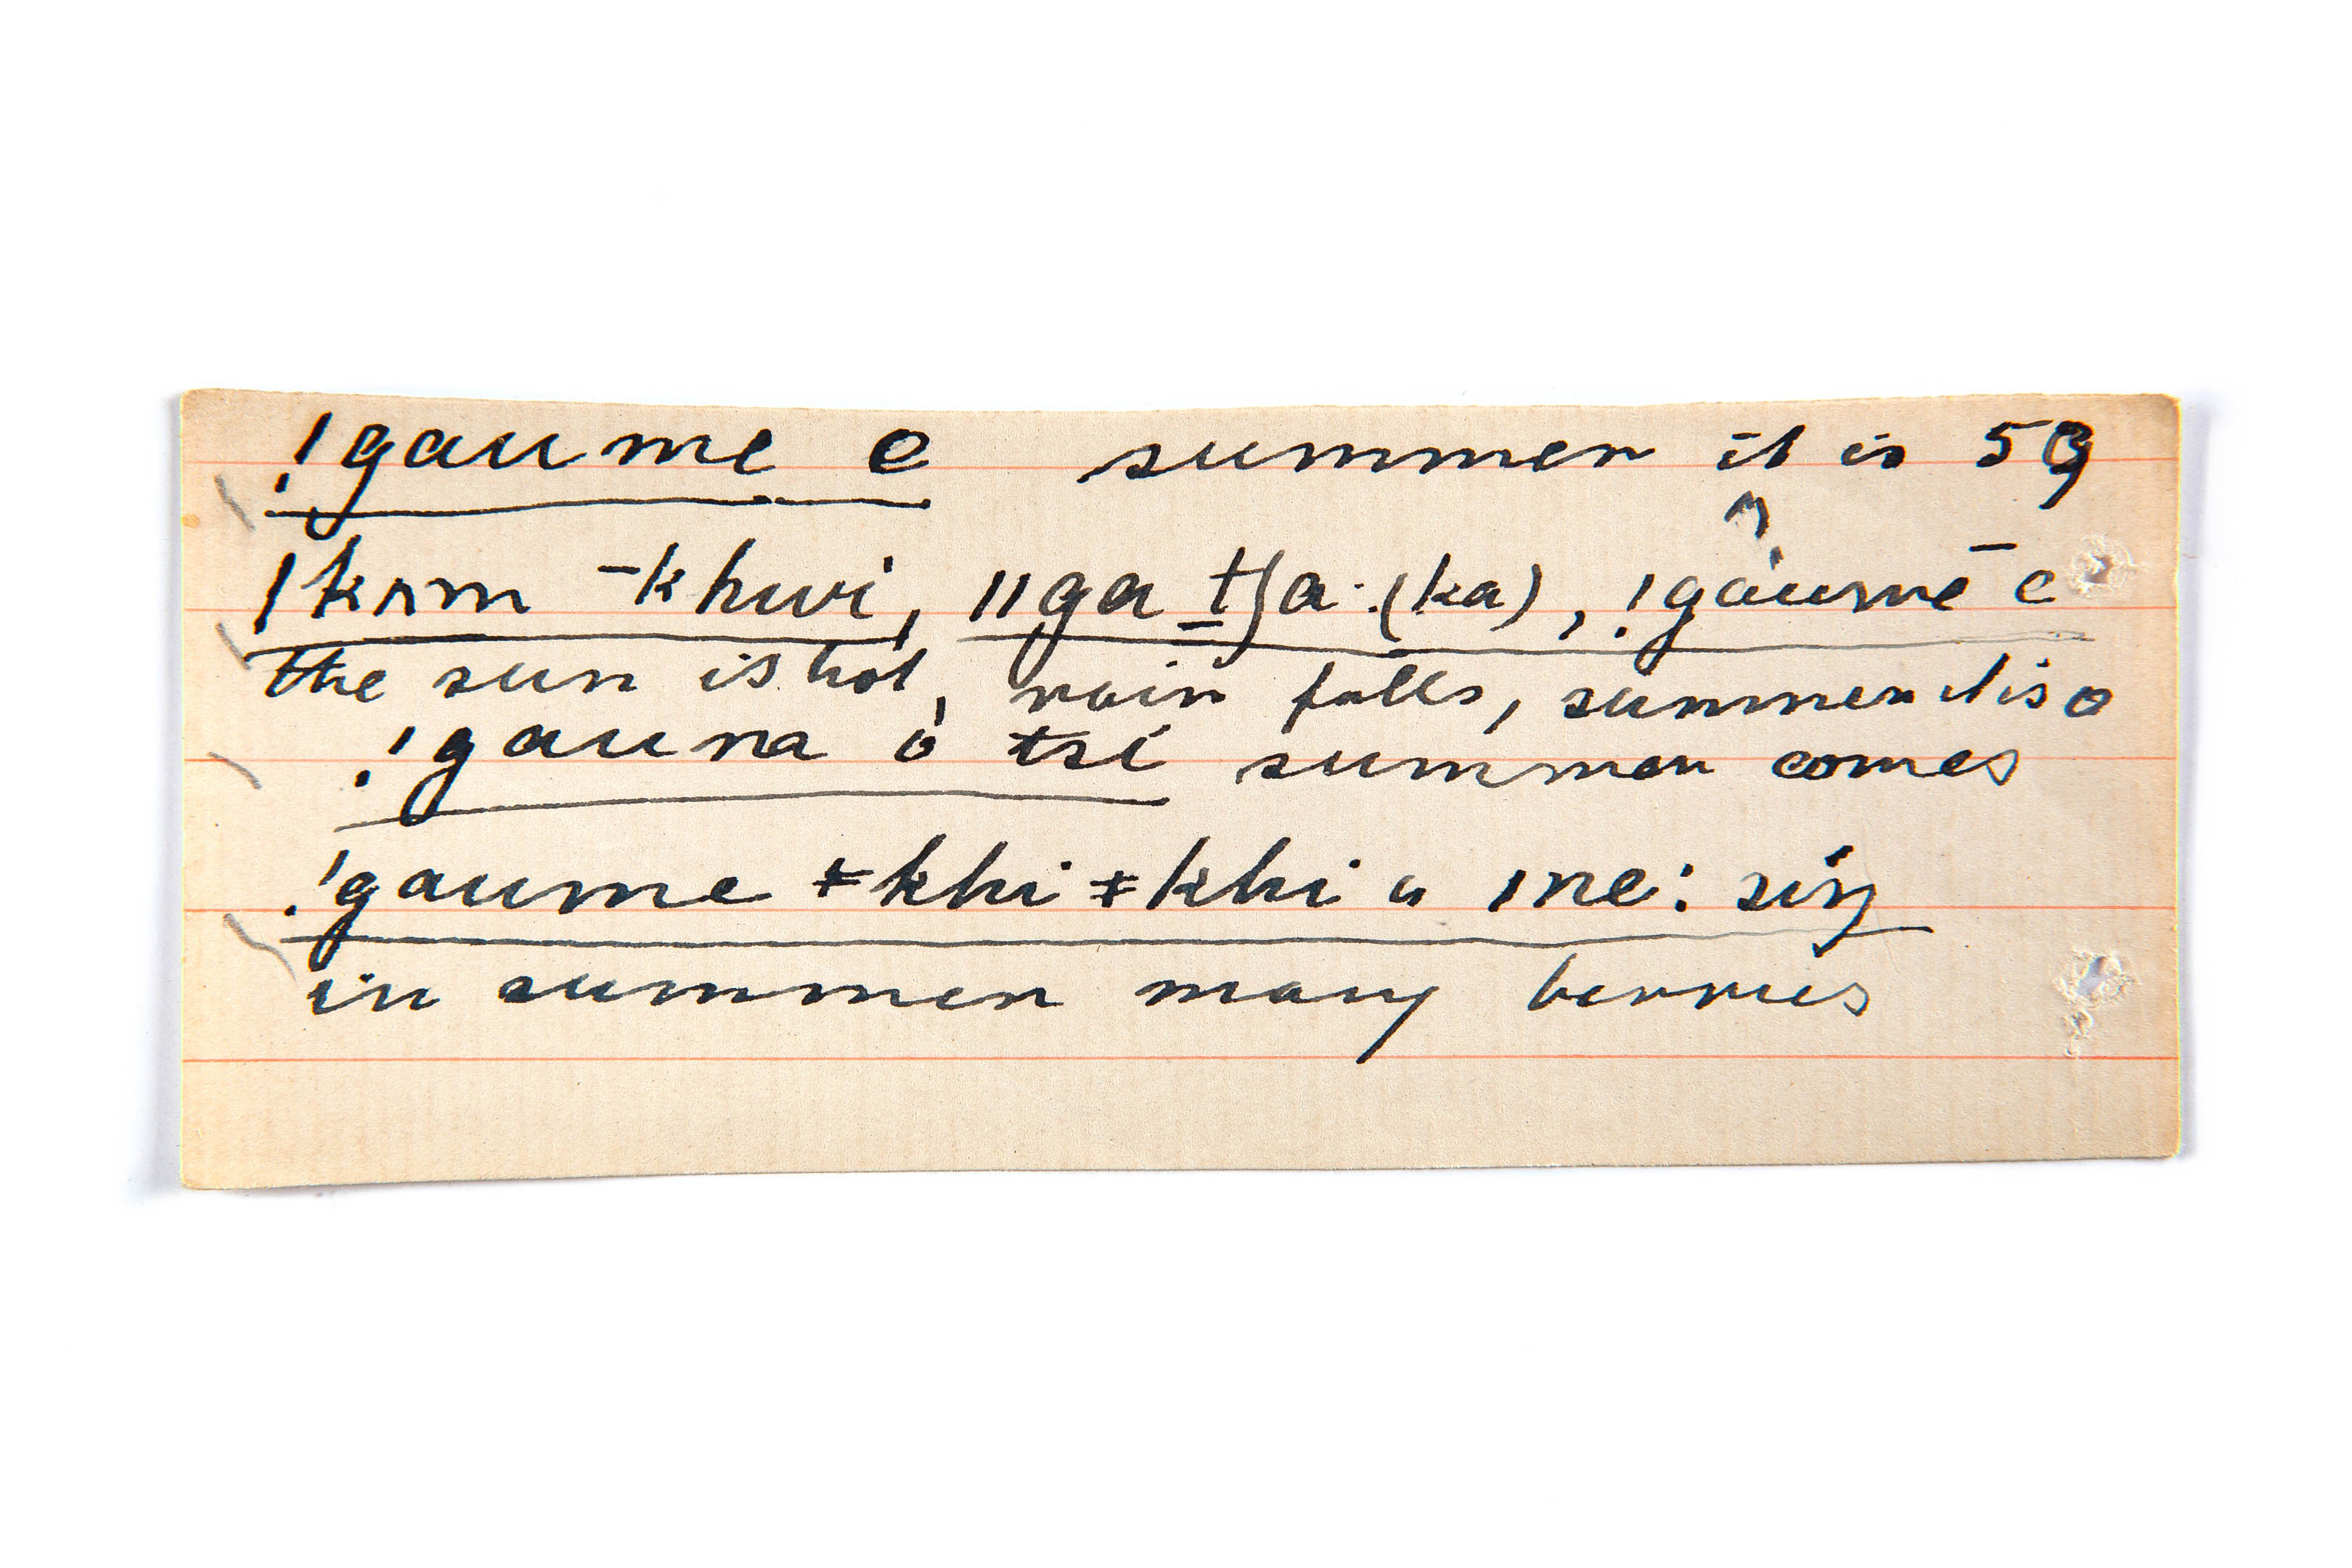 !gaume e summer it is 59
ǀkʌm ¯khwi, ǁga tʃa·(ka), !gaume ē
the sun is hot, rain falls, summer it is
!gauna o tsi summer comes
!gaume ǂkhi ǂkhi a ǀne: siŋ
in summer many berries